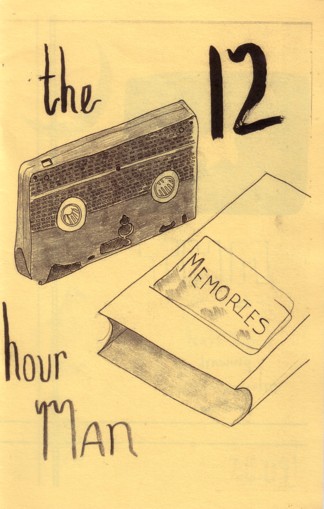 the 12
MEMORIES
hour
MAN